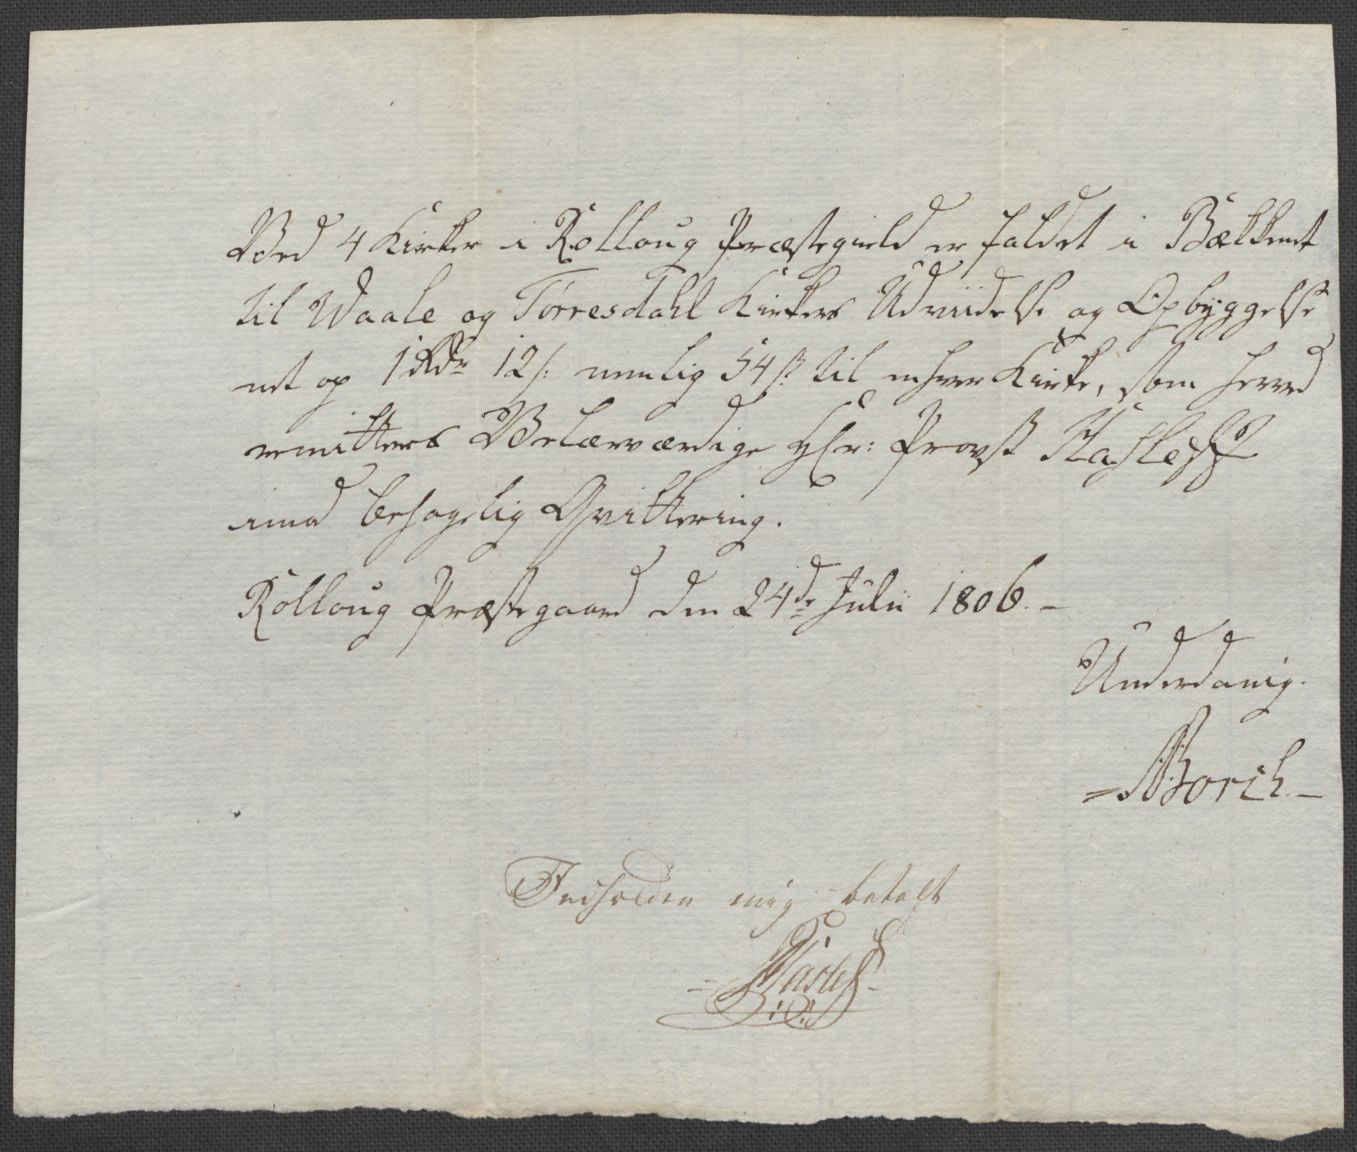 Ved 4 Kirker i Rolloug Præstegield er faldet i Bækkent
til Waale og Torresdahl Kirkers Udviidelse og Opbyggelse
1 Rdr 12 s: nemlig 54 s: til enhver Kirke, som herved
remitters Velærværdige Hr: Provst
imod behagelig Qvittering.
Rolloug Præstegaard den 24de Julii 1806. –
Underdanig.
Borch. –
Indholden mig betalt